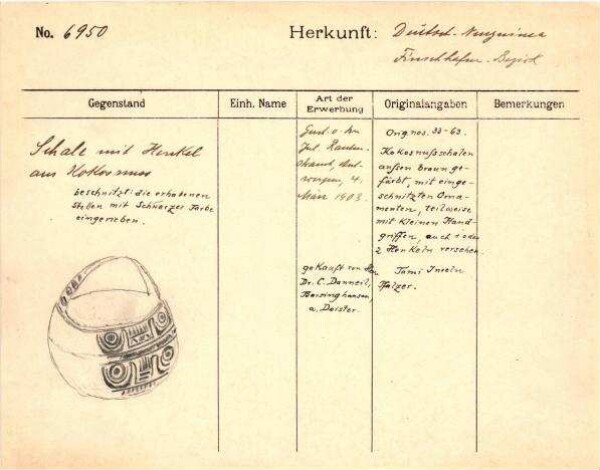 No. 6950
Herkunft: Deutsch-Neuguinea
Finschhafen-Bezirk
Gegenstand
Einh. Name
Art der Erwerbung
Originalangaben
Bemerkungen
Schale mit Henkel
aus Kokosnuss
beschnitzt; die erhabenen
Stellen mit schwarzer Farbe
eingerieben.
4.
März 1903.
gekauft von
Dr. C. Danneil,
Barsinghausen
a. Deister
Orig. nos. 33-63.
Kokosnußschalen
außen braun ge-
färbt, mit einge-
schnitzten Orna-
menten, teilweise
mit kleinen Hand-
griffen, auch 1 oder
2 Henkeln versehen.
Tami Inseln